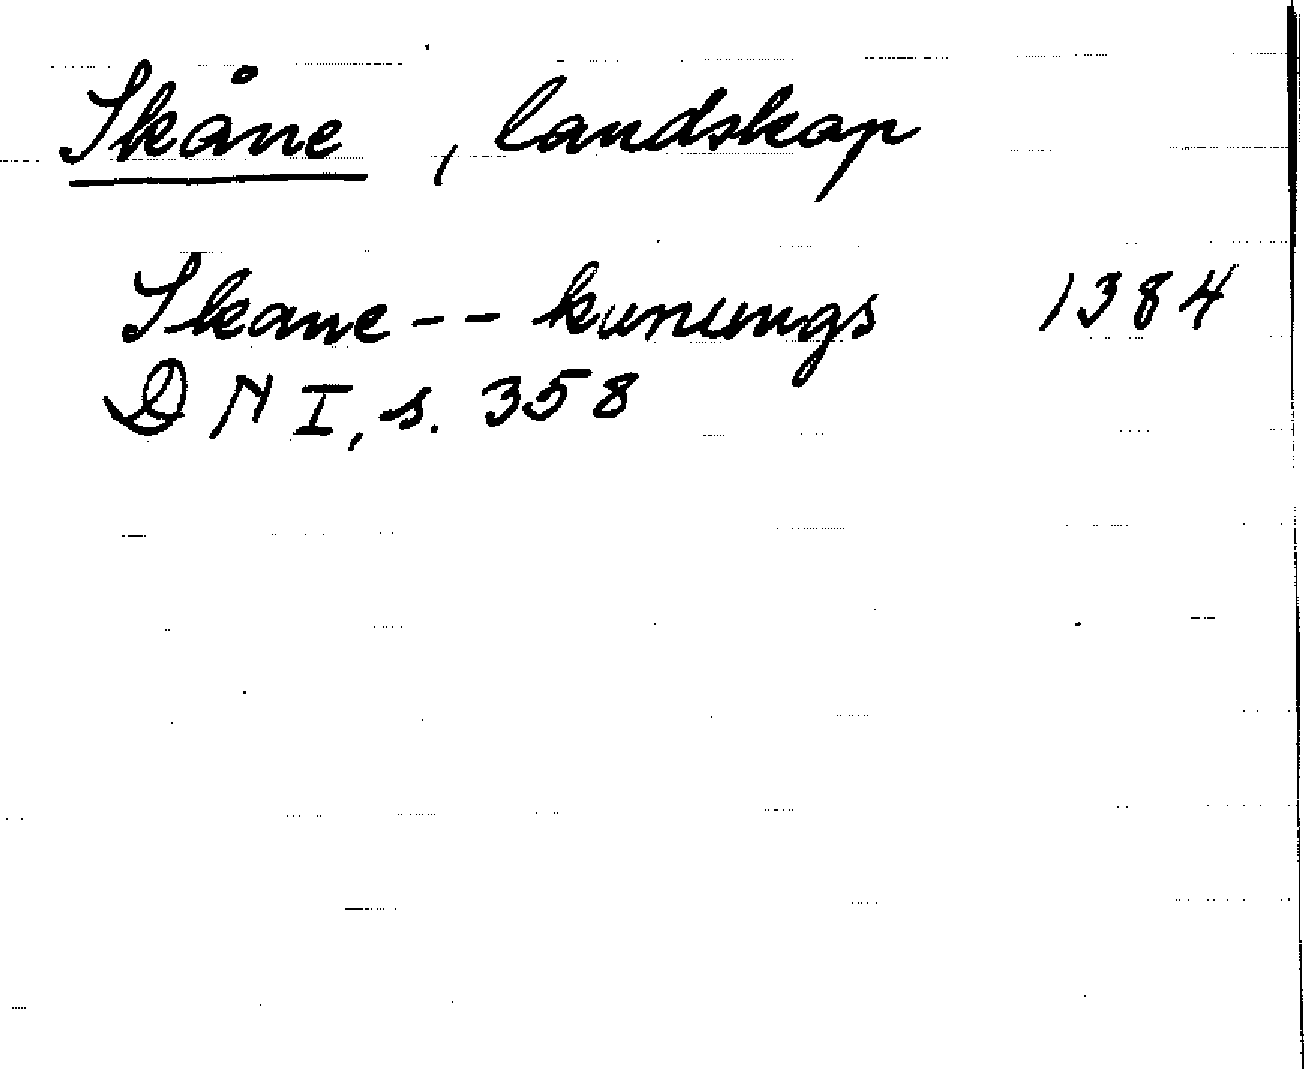 Skåne, landskap
Skane -- kunungs 1384
DN I, s. 358